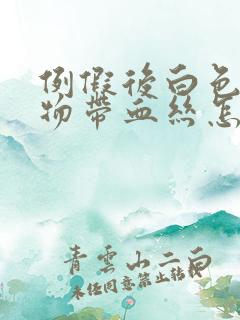 例假後白色
物帶血絲怎
青雲山二白
未任同意禁止转载